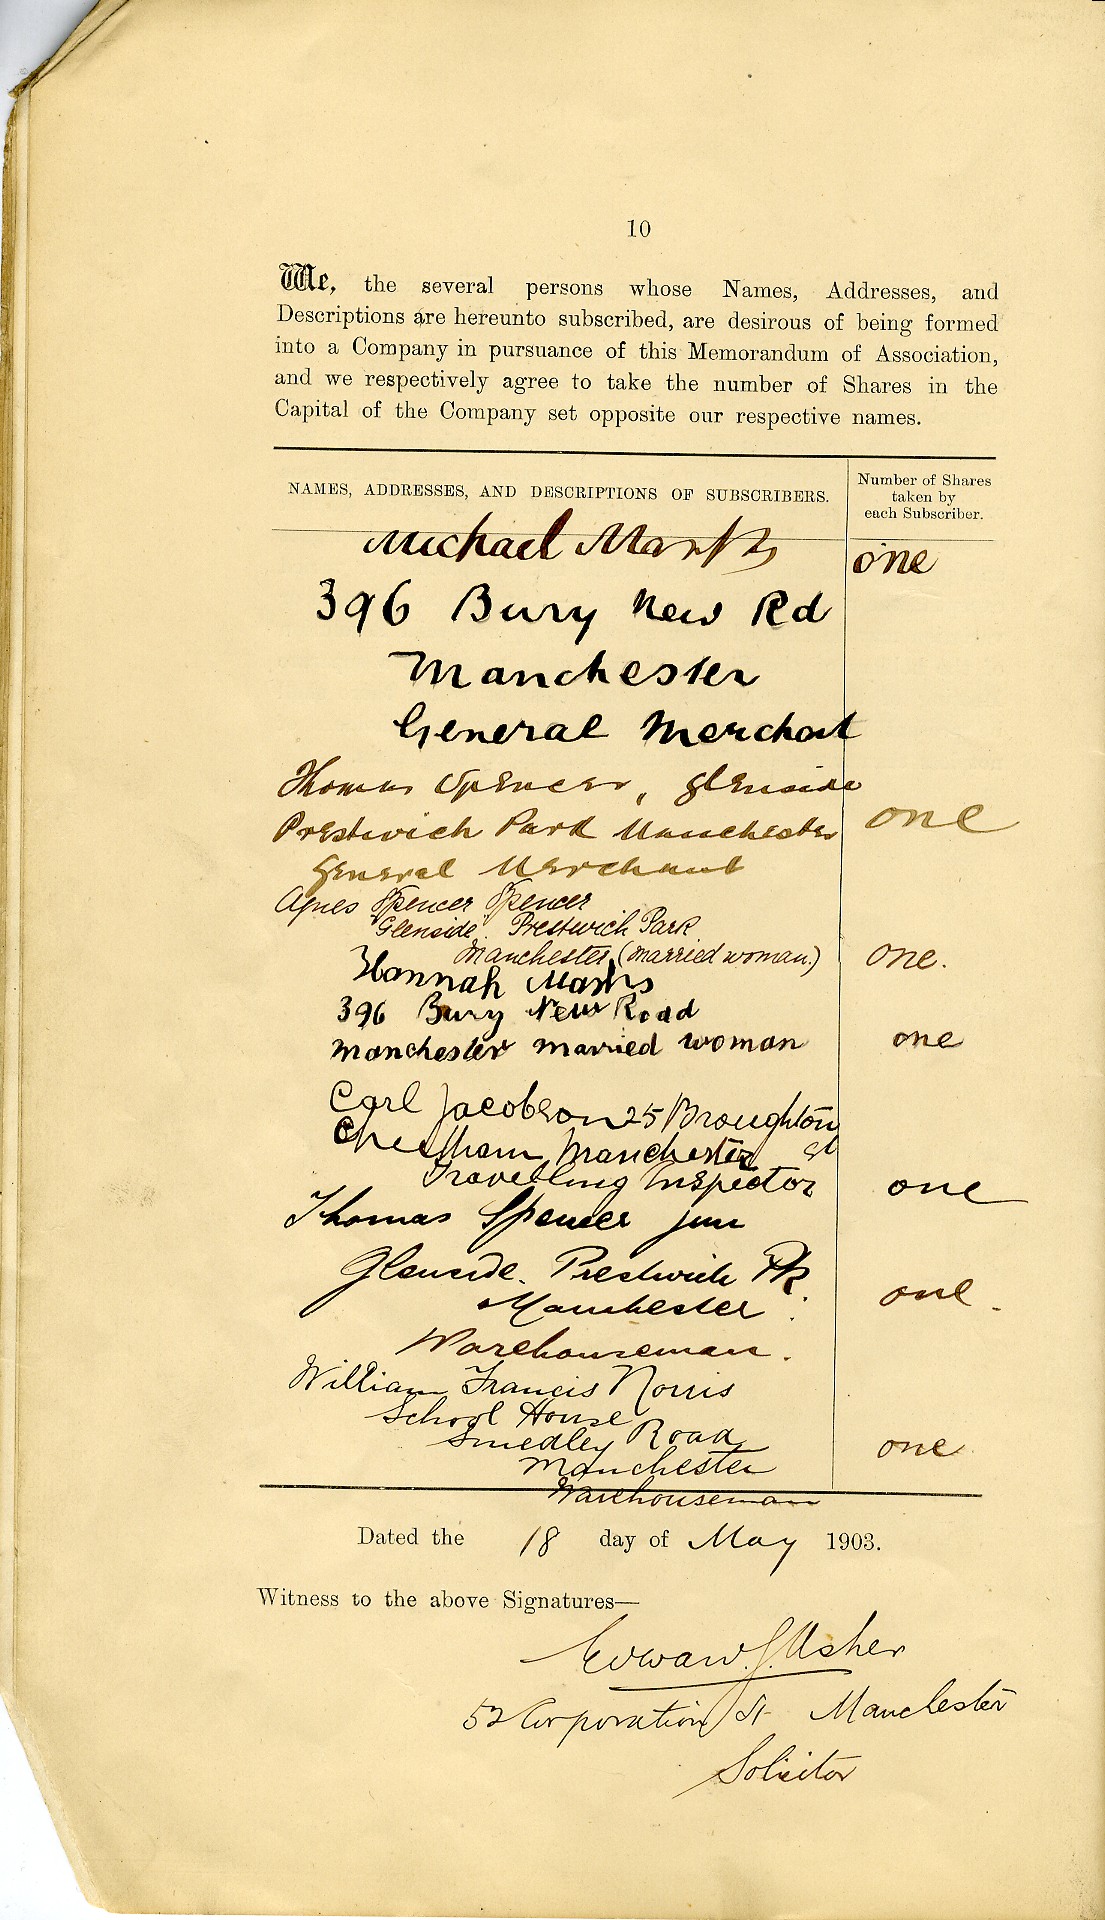 10
We, the several persons whose Names, Addresses, and
Descriptions are hereunto subscribed, are desirous of being formed
into a Company in pursuance of this Memorandum of Association,
and we respectively agree to take the number of Shares in the
Capital of the Company set opposite our respective names.
NAMES, ADDRESSES, AND DESCRIPTIONS OF SUBSCRIBERS.
Number of Shares
taken by
each Subscriber.
Michael Marks
one
396 Bury New Rd
Manchester
General Merchant
Thomas Spencer, Glenside
Prestwich Park Manchester
one
General Merchant
Agnes Spencer Spencer
Glenside. Prestwich Park
Manchester (married woman.)
one.
Hannah Marks
396 Bury New Road
Manchester married woman
one
Carl Jacobson 25 Broughton
st
Cheetham Manchester
Travelling Inspector
one
Thomas Spencer jun
Glenside. Prestwich Pk.
one.
Manchester.
Warehouseman.
William Francis Norris
School House
Smedley Road
one
Manchester
Warehouseman
Dated the 18 day of May 1903.
Witness to the above Signatures—
Edward J. Usher
52 Corporation St Manchester
Solicitor